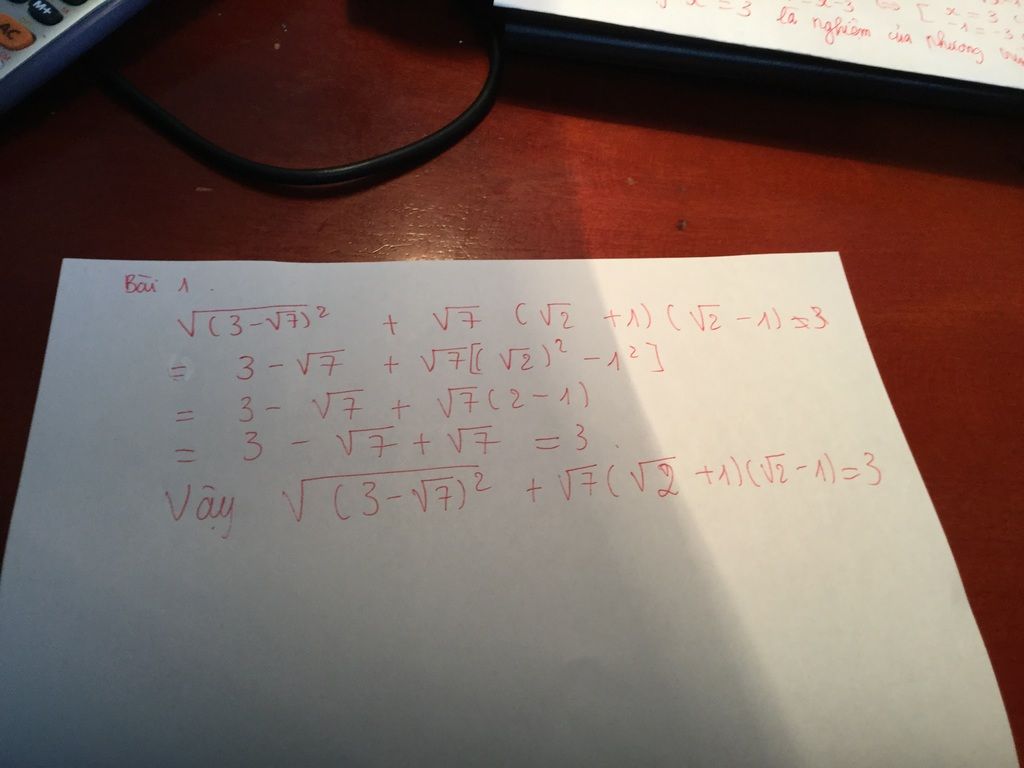 M+
AC
x = 3 là nghiệm của phương
Bài 1.
√(3-√7)² + √7 (√2 +1) (√2 -1) = 3
= 3 - √7 + √7[(√2)² - 1²]
= 3 - √7 + √7(2-1)
= 3 - √7 + √7 = 3.
Vậy √(3-√7)² + √7(√2 +1)(√2 -1)=3